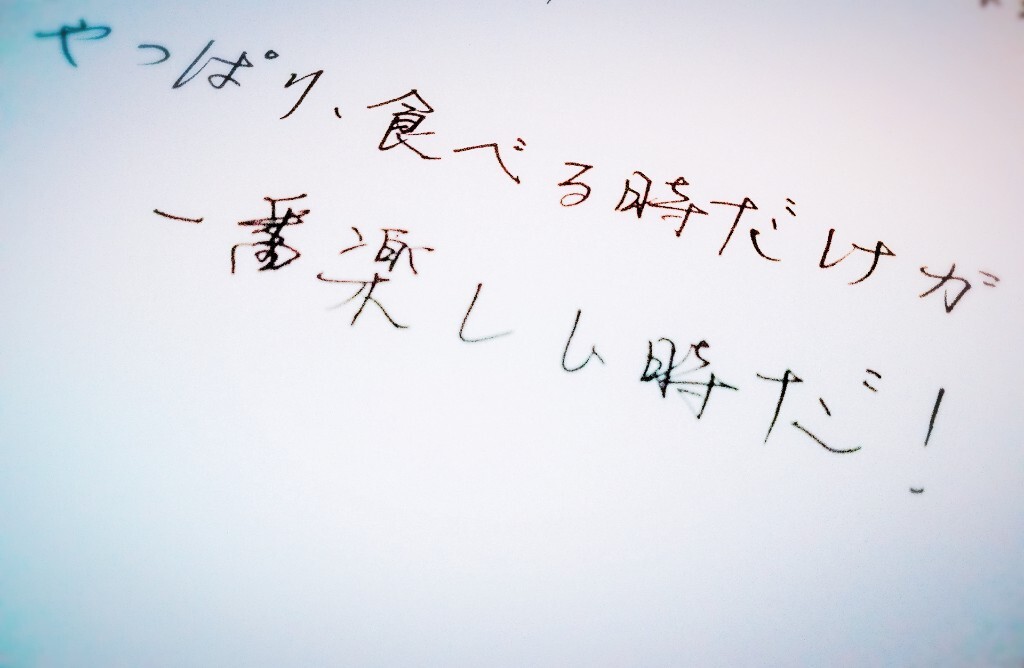 やっぱり、食べる時だけが
一番楽しい時だ!